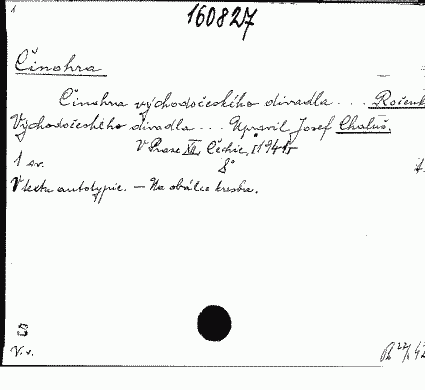 1
160827
Činohra
Činohra východočeského divadla ... Ročenk
Východočeského divadla ... Upravil Josef Chaluš.
V Praze XII, Čechie, 1941
1 sv. 8°
V textu autotypie. – Na obálce kresba.
S
V. v.